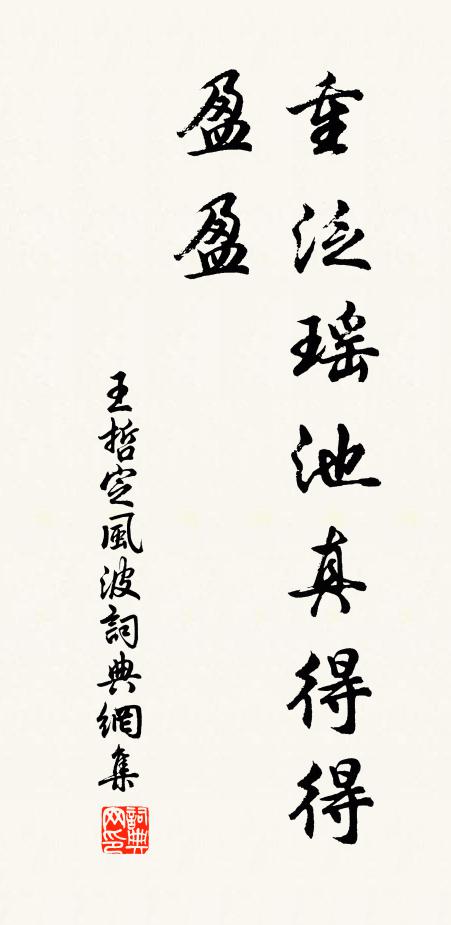 重泛瑶池真得得
盈盈
王哲定風波詞典網集
詞典网印